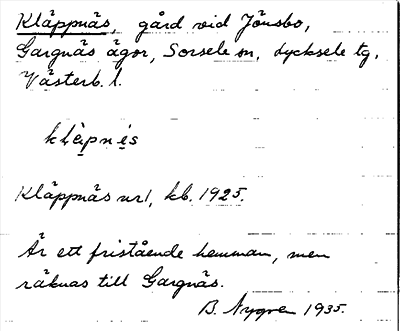 Kläppnäs, gård vid Jönsbo,
Gargnäs ägor, Sorsele sn, Lycksele tg,
Västerb. l.
klạ̈pnẹs
Kläppnäs nr1, kb. 1925.
Är ett fristående hemman, men
räknas till Gargnäs.
B. Nygren 1935.